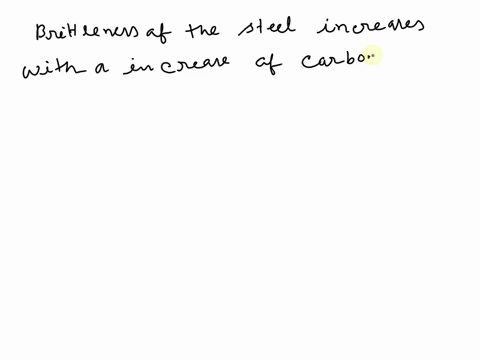 Brittleness of the steel increases
with a increase of carbo